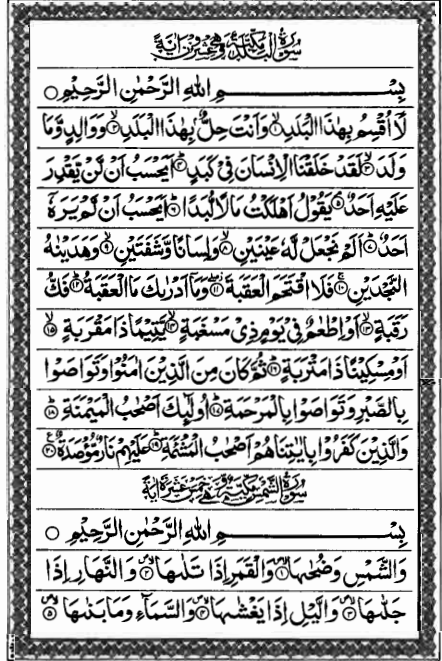 سُوْرَةُ الْبَلَدِ مَكِّيَّةٌ وَّهِىَ عِشْرُوْنَ اٰيَةً
بِسْمِ اللهِ الرَّحْمٰنِ الرَّحِيْمِ ○
لَاۤ اُقْسِمُ بِهٰذَا الْبَلَدِ ۙ﴿۱﴾ وَاَنْتَ حِلٌّۢ بِهٰذَا الْبَلَدِ ۙ﴿۲﴾ وَوَالِدٍ وَّمَا
وَلَدَ ۙ﴿۳﴾ لَقَدْ خَلَقْنَا الْاِنْسَانَ فِىْ كَبَدٍ ؕ﴿۴﴾ اَيَحْسَبُ اَنْ لَّنْ يَّقْدِرَ
عَلَيْهِ اَحَدٌ ۘ﴿۵﴾ يَقُوْلُ اَهْلَكْتُ مَالًا لُّبَدًا ؕ﴿۶﴾ اَيَحْسَبُ اَنْ لَّمْ يَرَهٗۤ
اَحَدٌ ؕ﴿۷﴾ اَلَمْ نَجْعَلْ لَّهٗ عَيْنَيْنِ ۙ﴿۸﴾ وَلِسَانًا وَّشَفَتَيْنِ ۙ﴿۹﴾ وَهَدَيْنٰهُ
النَّجْدَيْنِ ۚ﴿۱۰﴾ فَلَا اقْتَحَمَ الْعَقَبَةَ ۖ﴿۱۱﴾ وَمَاۤ اَدْرٰىكَ مَا الْعَقَبَةُ ؕ﴿۱۲﴾ فَكُّ
رَقَبَةٍ ۙ﴿۱۳﴾ اَوْ اِطْعٰمٌ فِىْ يَوْمٍ ذِىْ مَسْغَبَةٍ ۙ﴿۱۴﴾ يَّتِيْمًا ذَا مَقْرَبَةٍ ۙ﴿۱۵﴾
اَوْ مِسْكِيْنًا ذَا مَتْرَبَةٍ ؕ﴿۱۶﴾ ثُمَّ كَانَ مِنَ الَّذِيْنَ اٰمَنُوْا وَتَوَاصَوْا
بِالصَّبْرِ وَتَوَاصَوْا بِالْمَرْحَمَةِ ؕ﴿۱۷﴾ اُولٰٓئِكَ اَصْحٰبُ الْمَيْمَنَةِ ؕ﴿۱۸﴾
وَالَّذِيْنَ كَفَرُوْا بِاٰيٰتِنَا هُمْ اَصْحٰبُ الْمَشْـَٔمَةِ ؕ﴿۱۹﴾ عَلَيْهِمْ نَارٌ مُّؤْصَدَةٌ ﴿۲۰﴾
سُوْرَةُ الشَّمْسِ مَكِّيَّةٌ وَّهِىَ خَمْسَ عَشْرَةَ اٰيَةً
بِسْمِ اللهِ الرَّحْمٰنِ الرَّحِيْمِ ○
وَالشَّمْسِ وَضُحٰىهَا ۙ﴿۱﴾ وَالْقَمَرِ اِذَا تَلٰىهَا ۙ﴿۲﴾ وَالنَّهَارِ اِذَا
جَلّٰىهَا ۙ﴿۳﴾ وَالَّيْلِ اِذَا يَغْشٰىهَا ۙ﴿۴﴾ وَالسَّمَآءِ وَمَا بَنٰىهَا ۙ﴿۵﴾